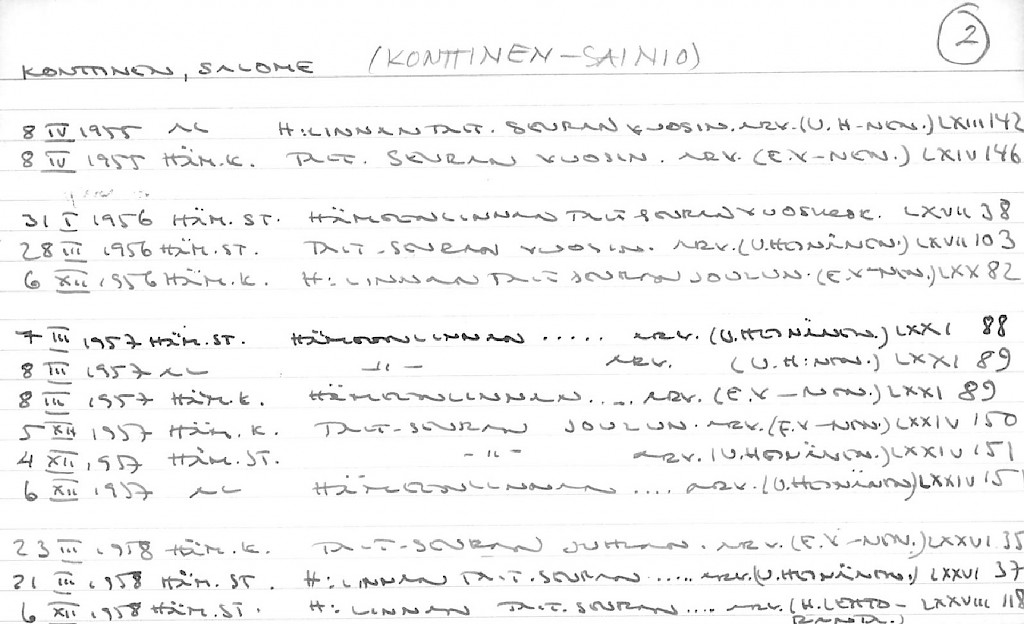 2
KONTTINEN, SALOME (KONTTINEN-SAINIO)
8 IV 1955 AL H:LINNAN TAIT. SEURAN VUOSIN. ARV. (U. H-NEN.) LXIII 142
8 IV 1955 HÄM.K. TAIT. SEURAN VUOSIN. ARV. (E.V-NEN.) LXIV 146
31 I 1956 HÄM. ST. HÄMEENLINNAN TAIT SEURAN LXVII 38
28 III 1956 HÄM. ST. TAIT-SEURAN VUOSIN. ARV. (U.HEINÄNEN.) LXVII 103
6 XII 1956 HÄM.K. H:LINNAN TAIT SEURAN JOULUN. (E.V-NEN.) LXX 82
7 III 1957 HÄM.ST. HÄMEENLINNAN ..... ARV. (U.HEINÄNEN.) LXXI 88
8 III 1957 AL -"- ARV. (U.H:NEN.) LXXI 89
8 III 1957 HÄM.K. HÄMEENLINNAN .... ARV. (E.V-NEN.) LXXI 89
5 XII 1957 HÄM.K. TAIT-SEURAN JOULUN. ARV. (E.V-NEN.) LXXIV 150
4 XII 1957 HÄM.ST. -"- ARV. (U.HEINÄNEN.) LXXIV 151
6 XII 1957 AL HÄMEENLINNAN .... ARV. (U.HEINÄNEN) LXXIV 151
23 III 1958 HÄM.K. TAIT-SEURAN JUHLAN. ARV. (E.V-NEN.) LXXVI 35
21 III 1958 HÄM.ST. H:LINNAN TAIT.SEURAN ..... ARV. (U.HEINÄNEN.) LXXVI 37
6 XII 1958 HÄM.ST. H:LINNAN TAIT.SEURAN .... ARV. (H.LEHTO- LXXVIII 118
RANTA.)